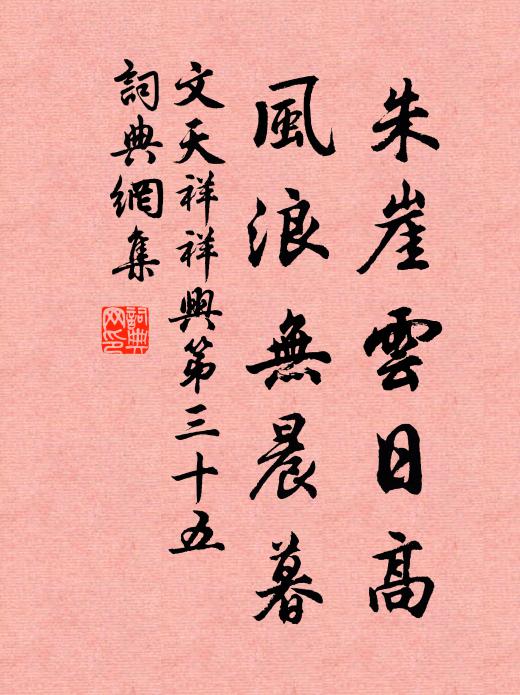 朱崖雲日高
風浪無晨暮
文天祥祥興第三十五
詞典網集
詞典網印